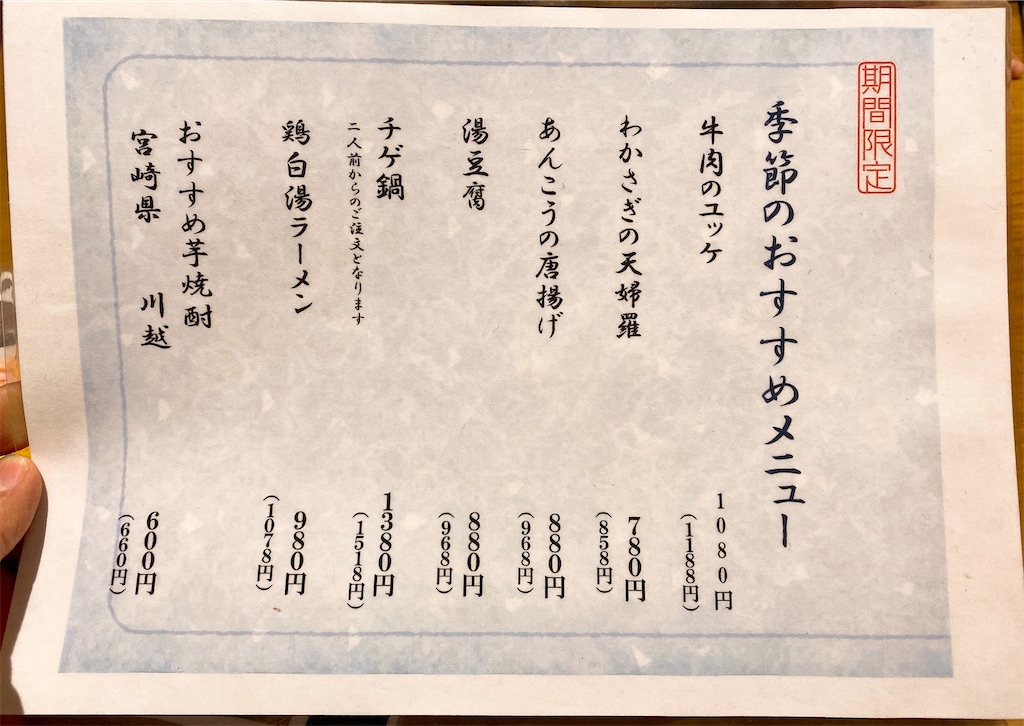 期間限定
季節のおすすめメニュー
牛肉のユッケ
1080円
(1188円)
わかさぎの天婦羅
780円
(858円)
あんこうの唐揚げ
880円
(968円)
湯豆腐
880円
(968円)
チゲ鍋
1380円
(1518円)
二人前からのご注文となります
鶏白湯ラーメン
980円
(1078円)
おすすめ芋焼酎
宮崎県 川越
600円
(660円)